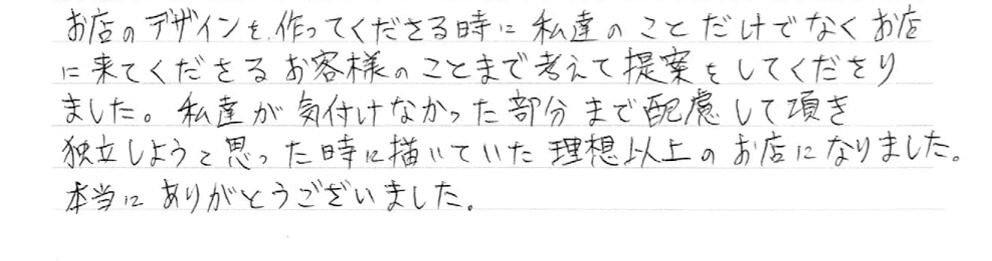 お店のデザインを作ってくださる時に私達のことだけでなくお店
に来てくださるお客様のことまで考えて提案をしてくださり
ました。私達が気付けなかった部分まで配慮して頂き
独立しようと思った時に描いていた理想以上のお店になりました。
本当にありがとうございました。